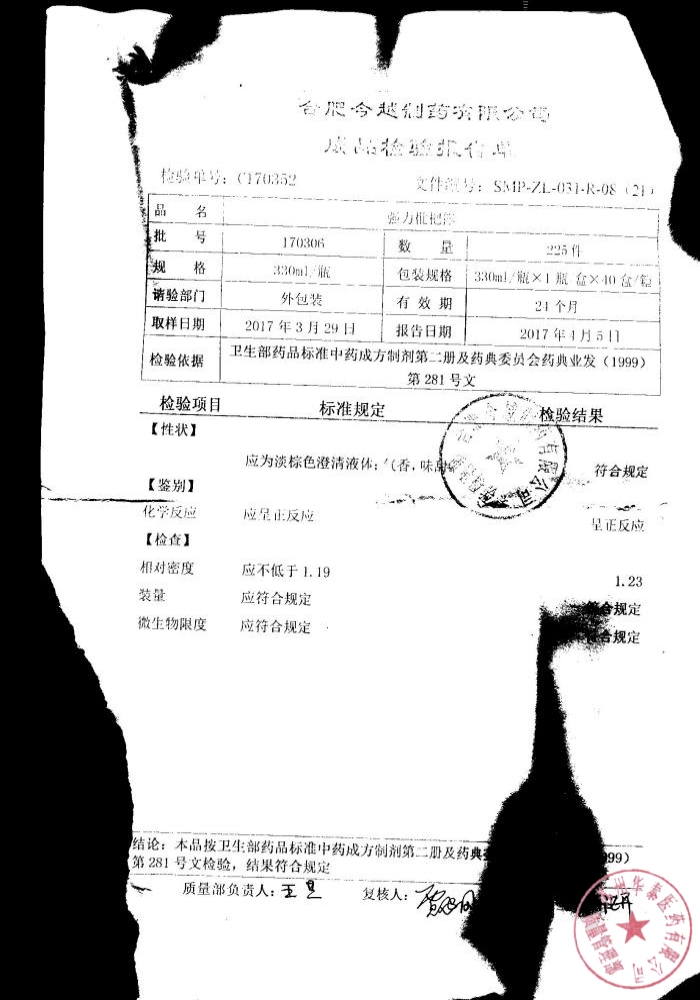 合肥今越制药有限公司
成品检验报告单
检验单号：C170352 文件编号：SMP-ZL-031-R-08（21）
品 名 强力枇杷露
批 号 170306 数 量 225件
规 格 330ml/瓶 包装规格 330ml/瓶×1瓶/盒×40盒/箱
请验部门 外包装 有 效 期 24个月
取样日期 2017年3月29日 报告日期 2017年4月5日
检验依据 卫生部药品标准中药成方制剂第二册及药典委员会药典业发（1999）
第281号文
检验项目 标准规定 检验结果
【性状】
应为淡棕色澄清液体；气香，味 符合规定
【鉴别】
化学反应 应呈正反应 呈正反应
【检查】
相对密度 应不低于1.19 1.23
装量 应符合规定 符合规定
微生物限度 应符合规定 符合规定
结论：本品按卫生部药品标准中药成方制剂第二册及药典 99）
第281号文检验，结果符合规定
质量部负责人：王 复核人：
医药有限公司